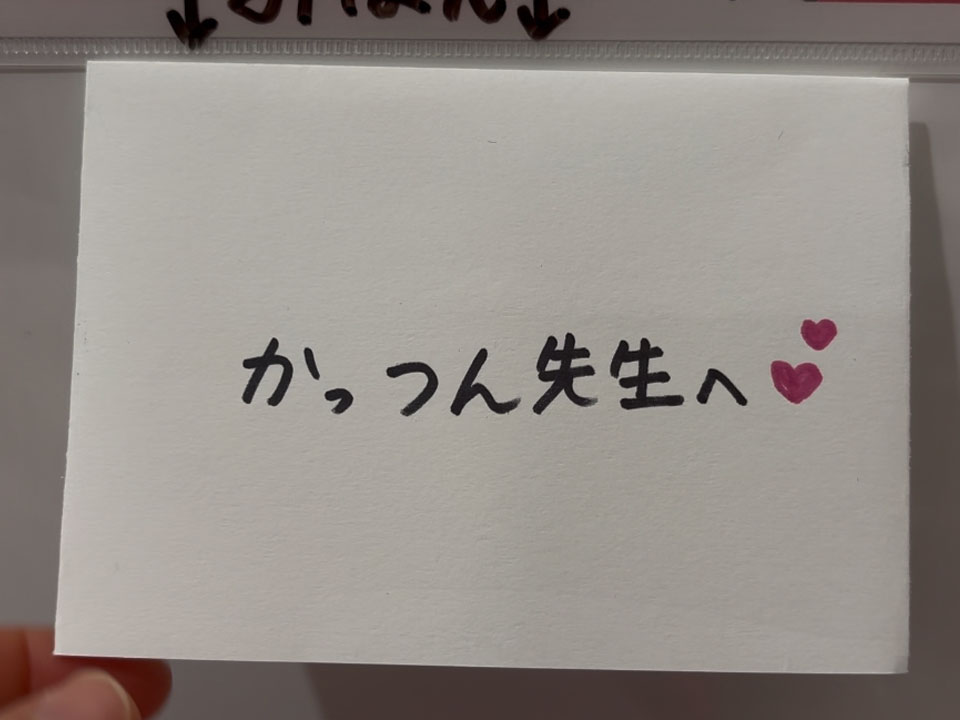 かっつん先生へ💕